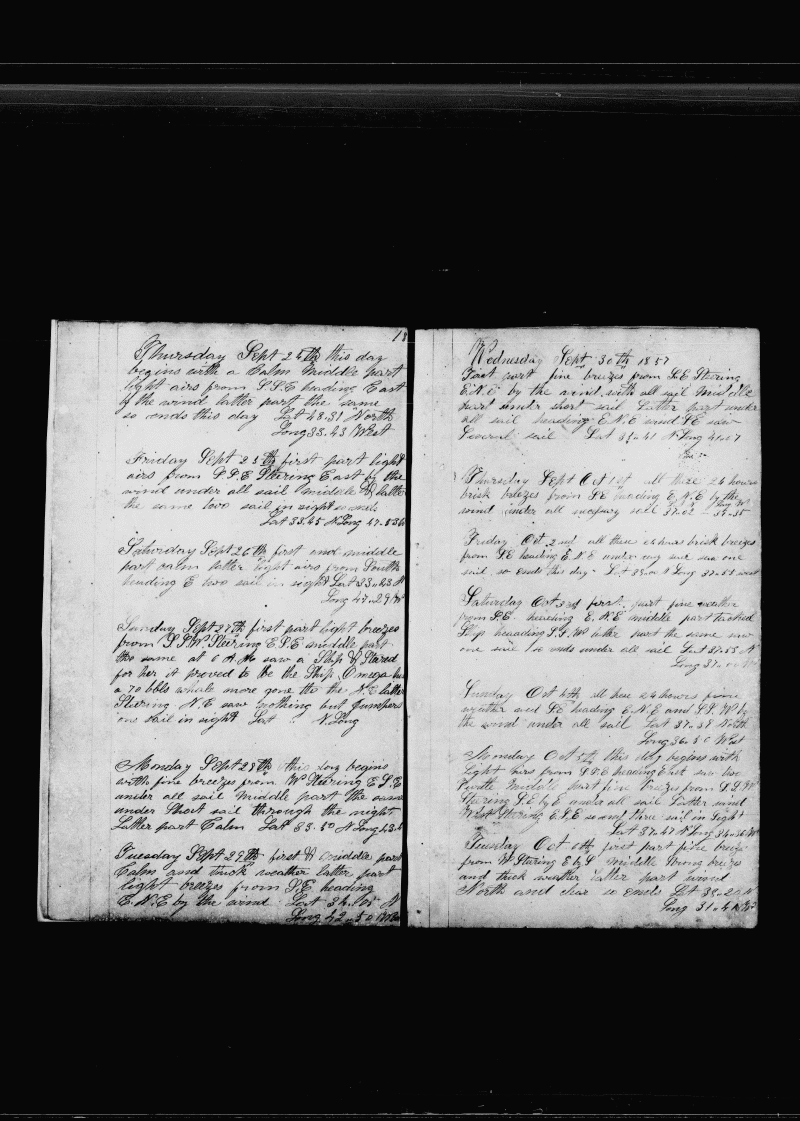 18
Thursday Sept 24th this day
begins with a Calm Middle part
light airs from S.S.E heading East
by the wind latter part the same
so ends this day Lat 43.31 North
Long 33.43 West
Friday Sept 25th first part light
airs from S.S.E Steering East by the
wind under all sail middle & latter
the same two sail in sight so ends
Lat 33.45 N Long 47.53
Saturday Sept 26th first and middle
part calm latter light airs from South
heading E two sail in sight Lat 33.23 N
Long 47.29 W
Sunday Sept 27th first part light breezes
from S.S.W. Steering E.S.E middle part
the same at 6 A.M saw a Ship & Stered
for her it proved to be the Ship Omega
a 70 bbls whale more gone to the N.E latter
Steering N.E saw nothing but Jumpers
one sail in sight Lat : N. Long
Monday Sept 28th this day begins
with fine breezes from W Steering E.S.E
under all sail Middle part the same
under Short sail through the night
Latter part Calm Lat 33.50 N Long 43
Tuesday Sept 29th first & middle part
Calm and thick weather latter part
light breezes from S.E. heading
E.N.E by the wind Lat 34.05 N
Long 42.50 West
Wednesday Sept 30th 1857
First part fine breezes from S.E Steering
E.N.E by the wind with all sail Middle
part under short sail Latter part under
all sail heading E.N.E wind S.E saw
Several sail Lat 34.41 N Long 41.57
Thursday Sept Oct 1st all these 24 hours
brisk breezes from S.E heading E.N.E by the
wind under all necessary sail 37.02 - 39.35
Long W.
Friday Oct 2nd all these 24 hours brisk breezes
from S.E heading E.N.E under easy sail saw one
sail so ends this day Lat 38.00 N Long 37.55 west
Saturday Oct 3rd first part fine weather
from S.E. heading E.N.E middle part tacked
Ship heading S.S.W latter part the same saw
one sail so ends under all sail Lat 37.55 N
Long 37.00 W
Sunday Oct 4th all these 24 hours fine
weather wind S.E heading E.N.E and S.S.W by
the wind under all sail Lat 37.37 North
Long 36.50 West
Monday Oct 5th this day begins with
Light airs from S.S.E heading East saw two
Middle part fine breezes from S.S.W
Steering S.E by E under all sail Latter wind
West Steering E.S.E so end three sail in sight
Lat 37.47 N Long 34.36 W
Tuesday Oct 6th first part fine breeze
from W Stering E by S middle strong breeze
and thick weather latter part wind
North and clear so ends Lat 38.20 N
Long 31.41 W